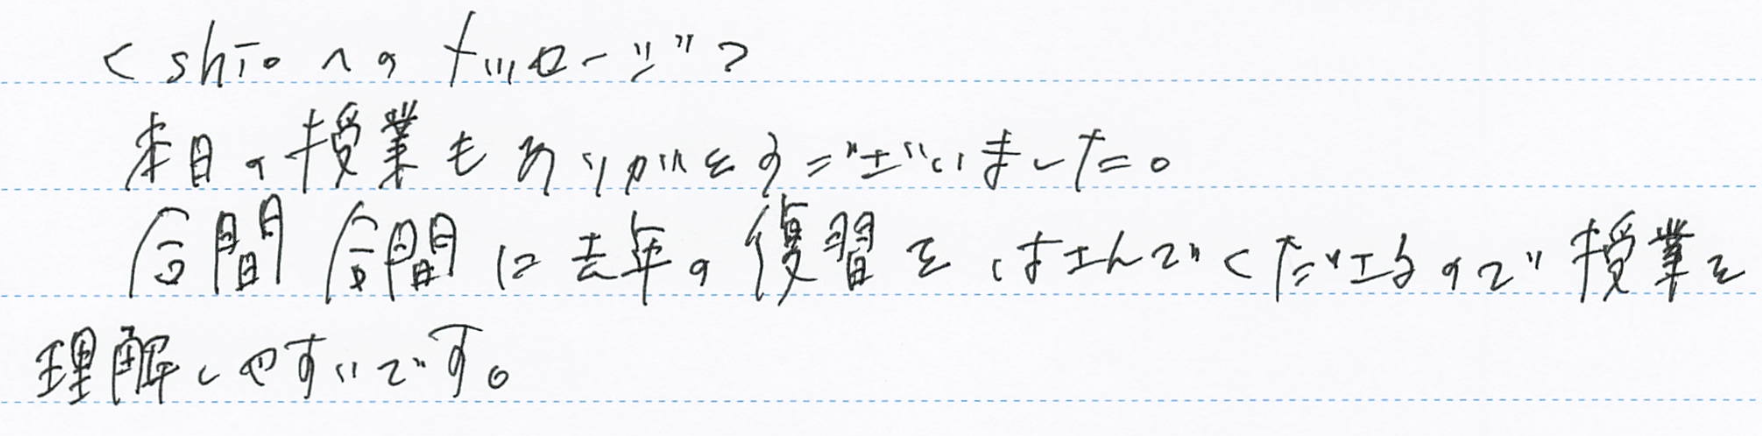 <shioへのメッセージ>
本日の授業もありがとうございました。
合間合間に去年の復習をはさんでくださるので授業を
理解しやすいです。